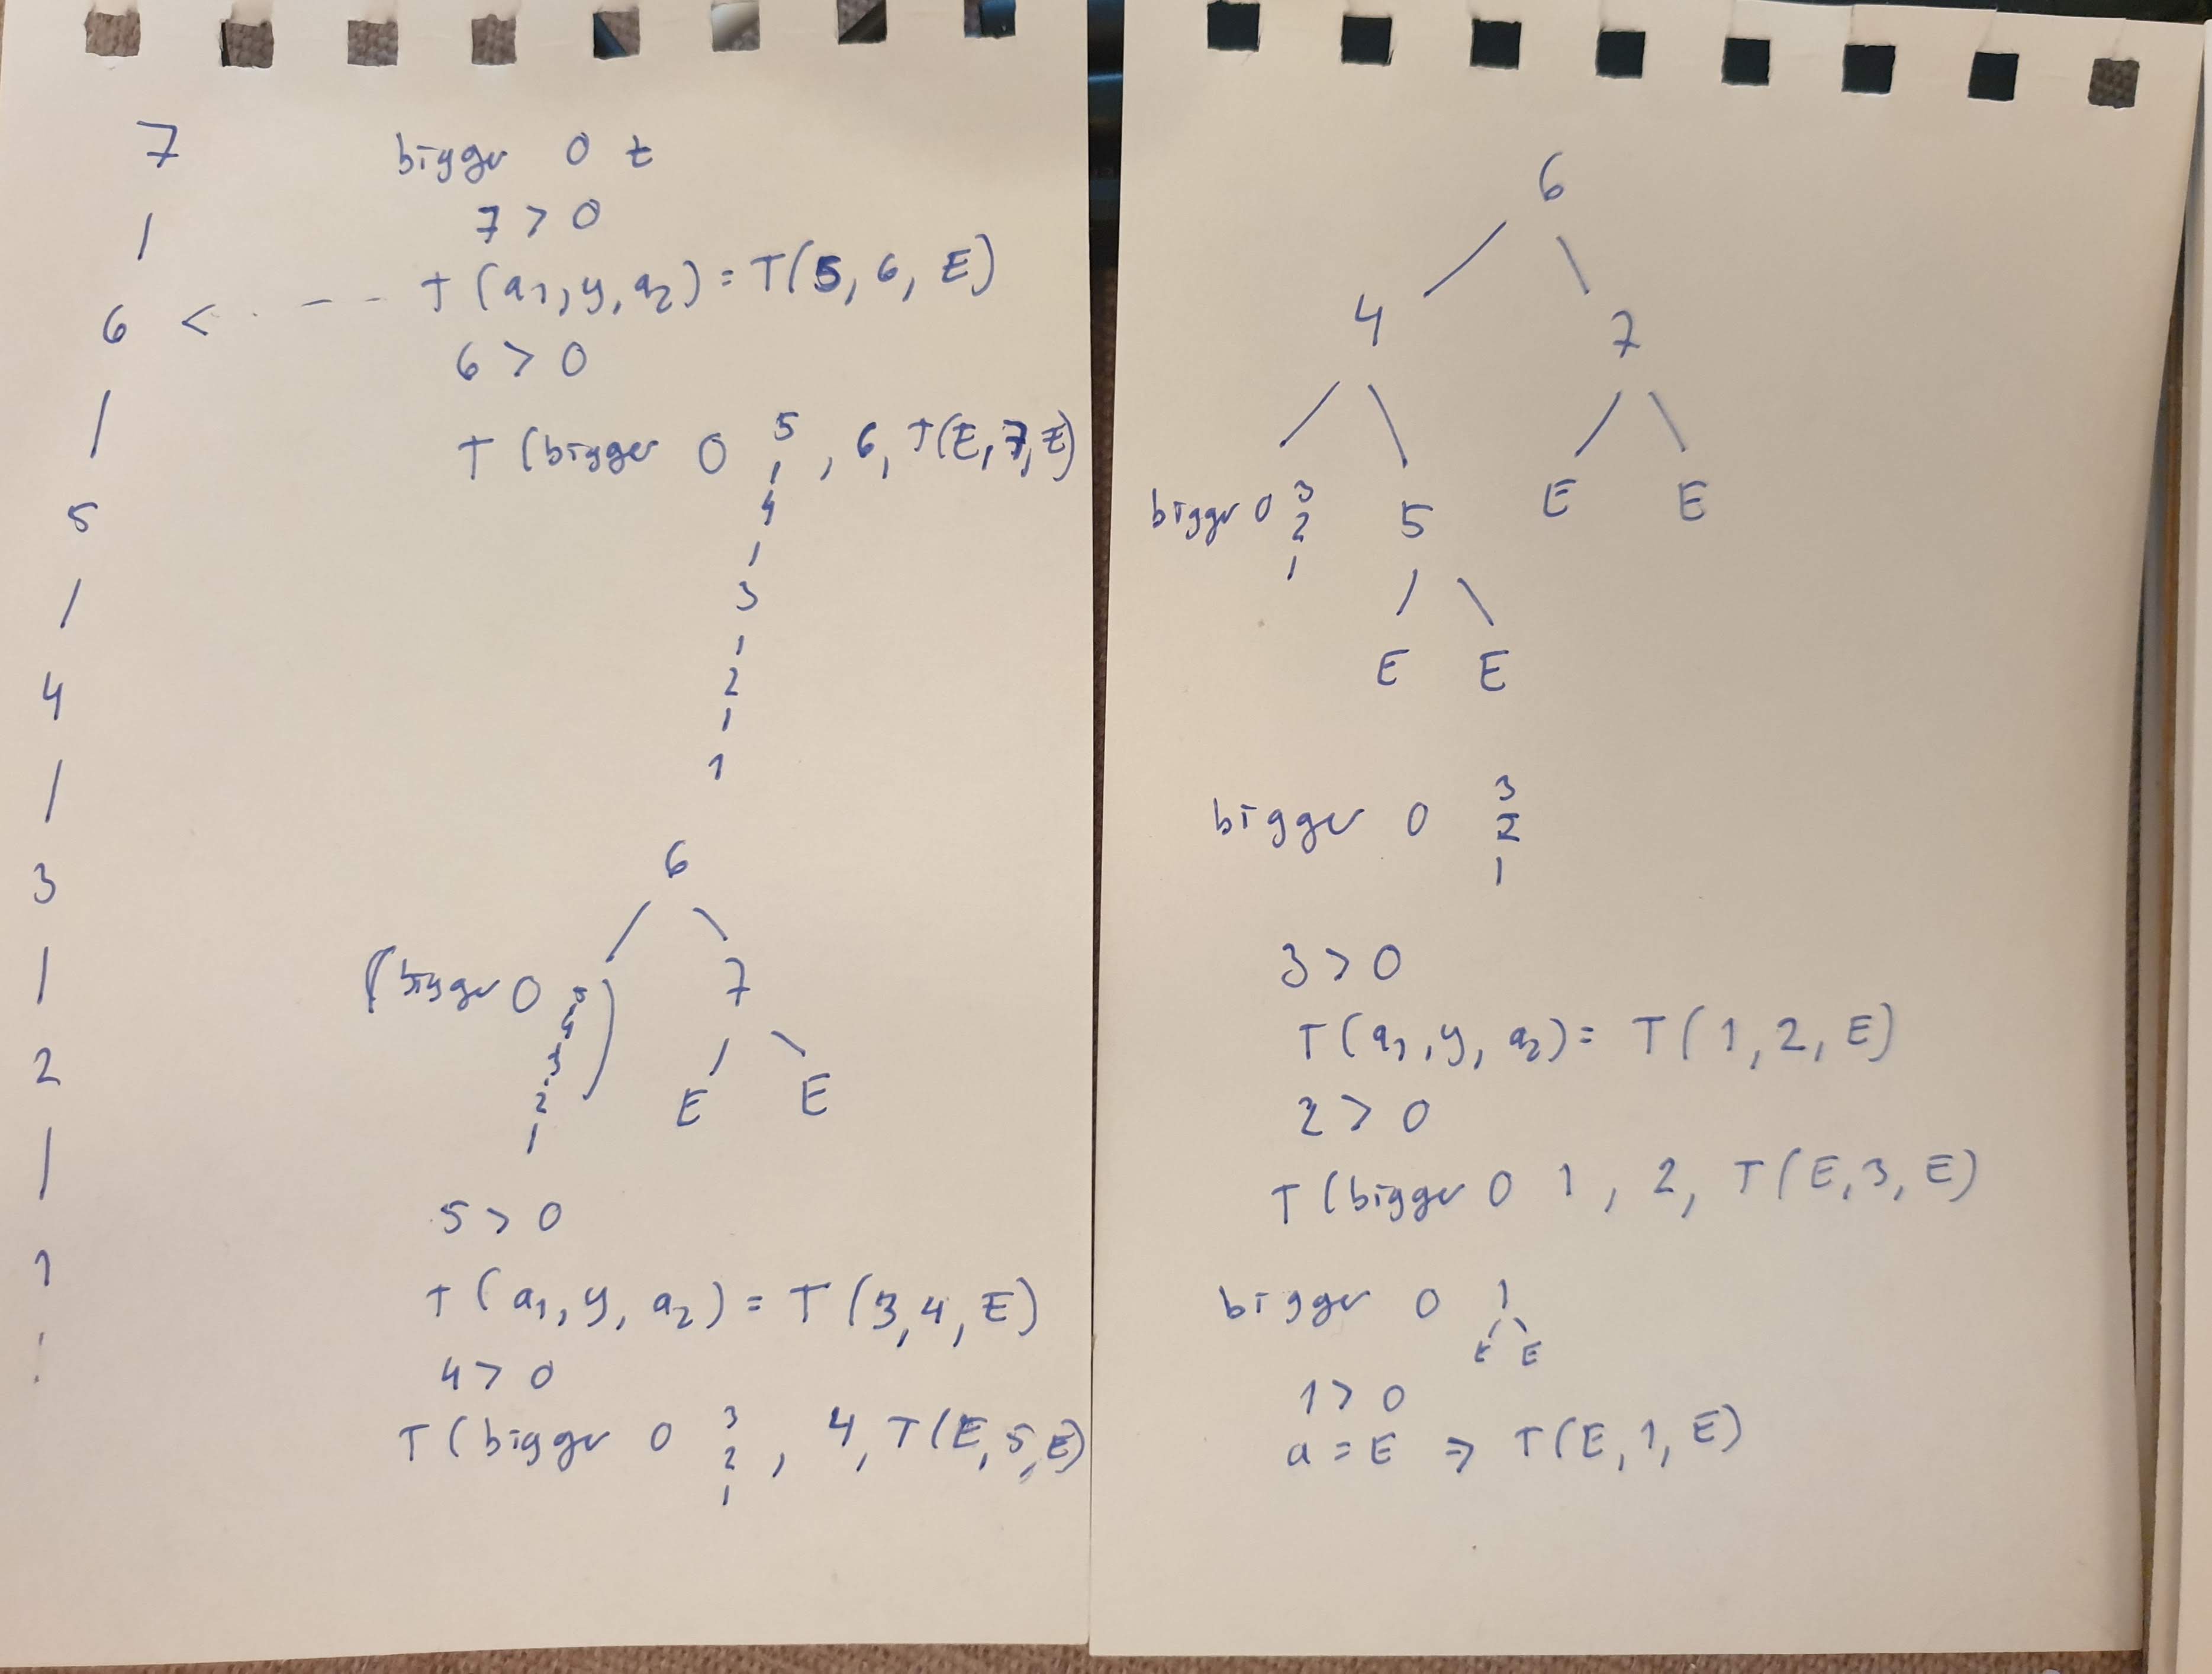 7
6
5
4
3
2
1
bigger 0 t
7 > 0
T (a1, y, a2) = T(5, 6, E)
6 > 0
T (bigger 0 5, 6, T(E, 7, E)
4
3
2
1
6
(bigger 0 5 ) 7
4
3
2 E E
1
5 > 0
T (a1, y, a2) = T (3, 4, E)
4 > 0
T (bigger 0 3 2 1, 4, T(E, 5, E)
6
4 7
bigger 0 3 2 1 5 E E
E E
bigger 0 3
2
1
3 > 0
T (a1, y, a2) = T (1, 2, E)
2 > 0
T (bigger 0 1, 2, T(E, 3, E)
bigger 0 1
E E
1 > 0
a = E ⇒ T(E, 1, E)